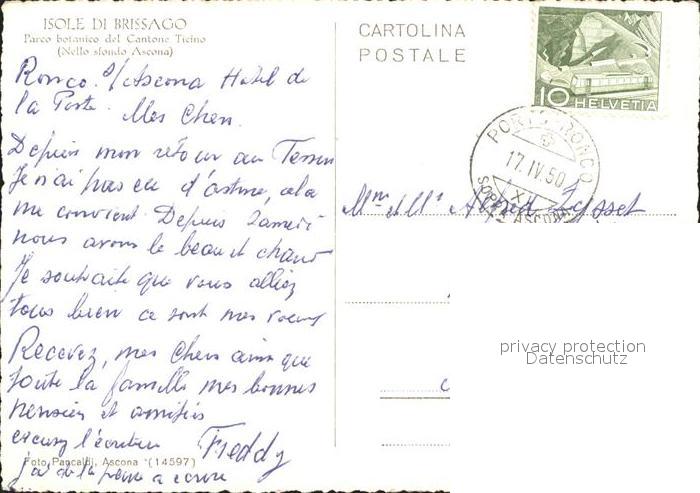 ISOLE DI BRISSAGO
Parco botanico del Cantone Ticino
(Nello sfondo Ascona)
Ronco s/Ascona Hotel de
la Poste. Mes Chers.
Depuis mon retour au Tessin
Je n'ai pas eu d'astme, cela
me convient. Depuis Samedi
nous avons le beau et chaud
Je souhaite que vous alliez
tous bien ce sont mes voeux
Recevez, mes Chers ainsi que
toute la famille mes bonnes
pensées et amitiés
excusez l'écriture Freddy
Foto Pancaldi, Ascona (14597)
j'ai de la peine a écrire
CARTOLINA
POSTALE
10 HELVETIA
PORTO RONCO
17.IV.50
XI
SOPRA ASCONA
Mme et Mr Alfred Zysset
privacy protection
Datenschutz